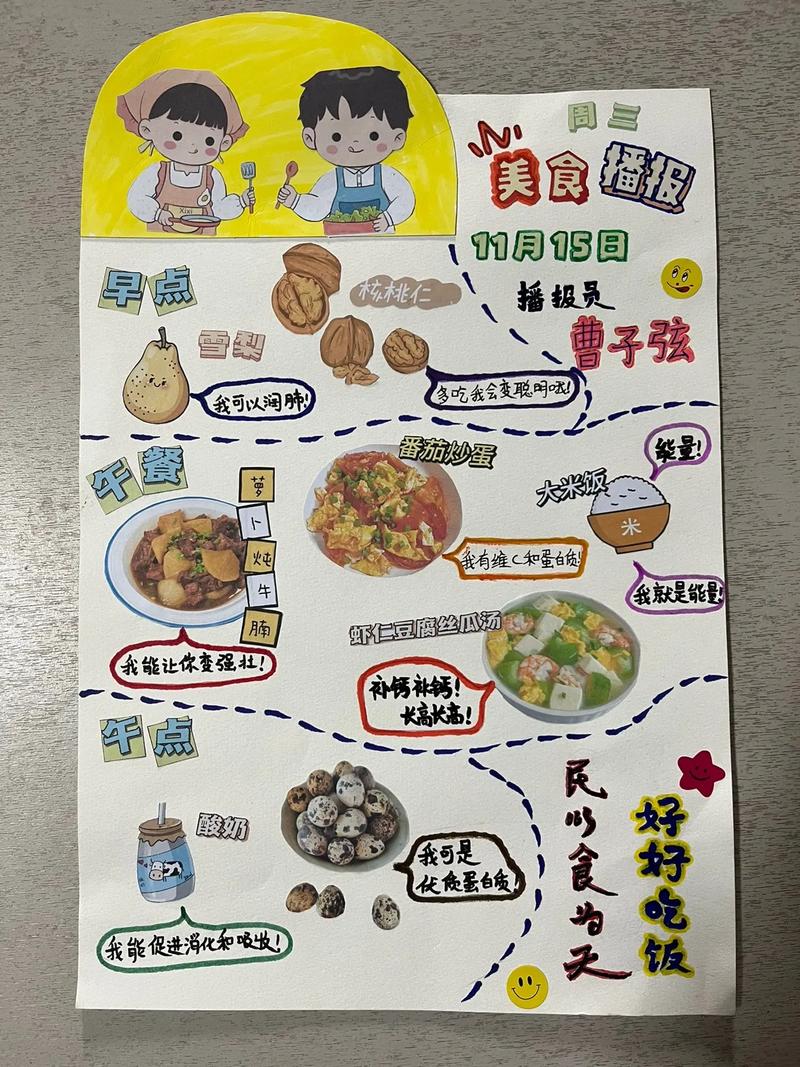 周三
美食播报
11月15日
播报员
曹子弦
Xixi
早点
雪梨
我可以润肺!
核桃仁
多吃我会变聪明哦!
午餐
萝
卜
炖
牛
腩
我能让你变强壮!
番茄炒蛋
我有维C和蛋白质!
大米饭
能量!
米
我就是能量!
虾仁豆腐丝瓜汤
补钙补钙!
长高长高!
午点
酸奶
我能促进消化和吸收!
我可是
优质蛋白质!
民以食为天
好好吃饭